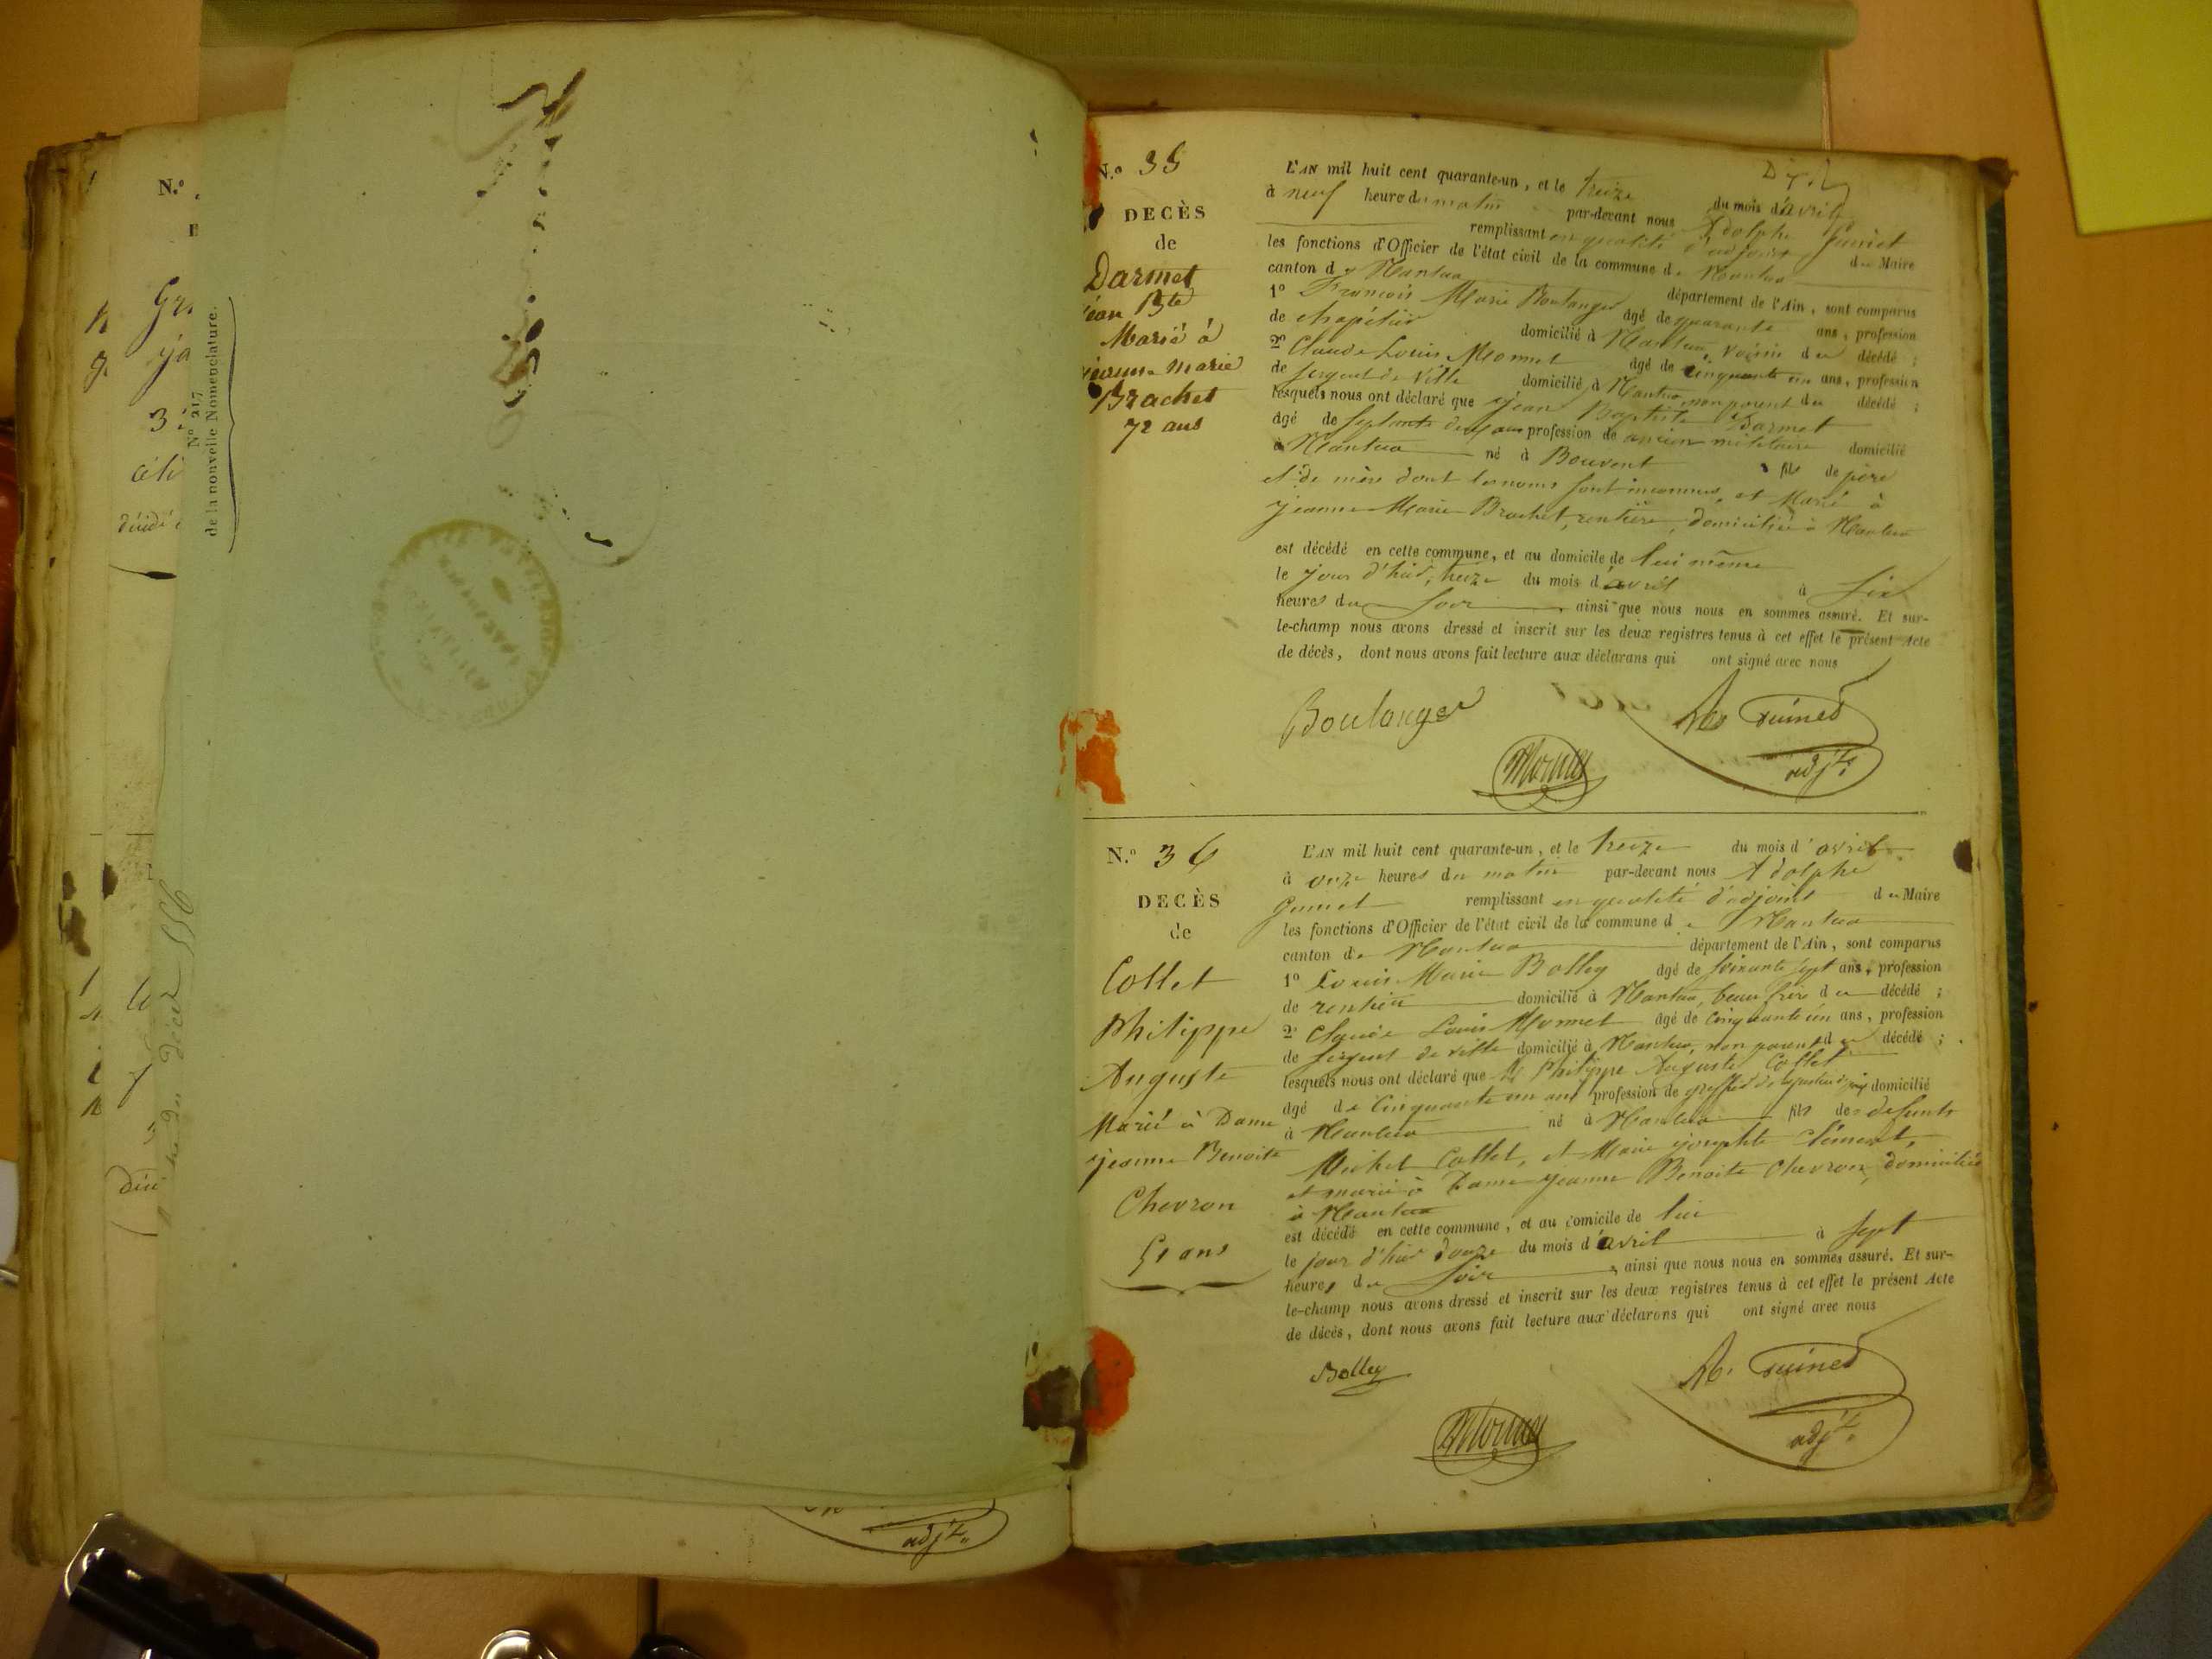 N.º
Gr
ja
3
N.º 217
de la nouvelle Nomenclature.
décidé
du décès
adjt.
N.º 35
DECÈS
de
Darmet
jean Bte
Marié à
jeanne marie
Brachet
72 ans
L'AN mil huit cent quarante-un, et le treize du mois d'avril
à neuf heure du matin par-devant nous Adolphe
remplissant en qualité d'adjoint du Maire
les fonctions d'Officier de l'état civil de la commune de Nantua
canton de Nantua département de l'Ain, sont comparus
1º François Marie Boulanger âgé de quarante ans, profession
de chapélier domicilié à Nantua, voisin du décédé ;
2º Claude Louis Monnet âgé de cinquante un ans, profession
de sergent de ville domicilié à Nantua, non parent du décédé ;
lesquels nous ont déclaré que jean Baptiste Darmet
âgé de septante deux ans profession de ancien militaire domicilié
à Nantua né à Bouvent fils de père
et de mère dont les noms sont inconnus, et Marié à
jeanne Marie Brachet, rentière, domiciliée à Nantua
est décédé en cette commune, et au domicile de lui même
le jour d'hier, treize du mois d'avril à six
heures du soir ainsi que nous nous en sommes assuré. Et sur-
le-champ nous avons dressé et inscrit sur les deux registres tenus à cet effet le présent Acte
de décès, dont nous avons fait lecture aux déclarans qui ont signé avec nous
Boulanger
Monnet
adjt.
N.º 36
DECÈS
de
Collet
Philippe
Auguste
Marié à Dame
jeanne Benoite
Chevron
51 ans
L'AN mil huit cent quarante-un, et le treize du mois d'avril
à onze heures du matin par-devant nous Adolphe
remplissant en qualité d'adjoint du Maire
les fonctions d'Officier de l'état civil de la commune de Nantua
canton de Nantua département de l'Ain, sont comparus
1º Louis Marie Bolley âgé de soixante sept ans, profession
de rentier domicilié à Nantua, beau frère du décédé ;
2º Claude Louis Monnet âgé de cinquante un ans, profession
de sergent de ville domicilié à Nantua, non parent du décédé ;
lesquels nous ont déclaré que Mr Philippe Auguste Collet
âgé de cinquante un ans profession de greffier de la justice de paix domicilié
à Nantua né à Nantua fils de defunts
Michel Collet, et Marie josephte Clément,
et marié à Dame jeanne Benoite Chevron, domiciliée
à Nantua
est décédé en cette commune, et au domicile de lui
le jour d'hier douze du mois d'avril à sept
heures du soir, ainsi que nous nous en sommes assuré. Et sur-
le-champ nous avons dressé et inscrit sur les deux registres tenus à cet effet le présent Acte
de décès, dont nous avons fait lecture aux déclarans qui ont signé avec nous
Bolley
Monnet
adjt.